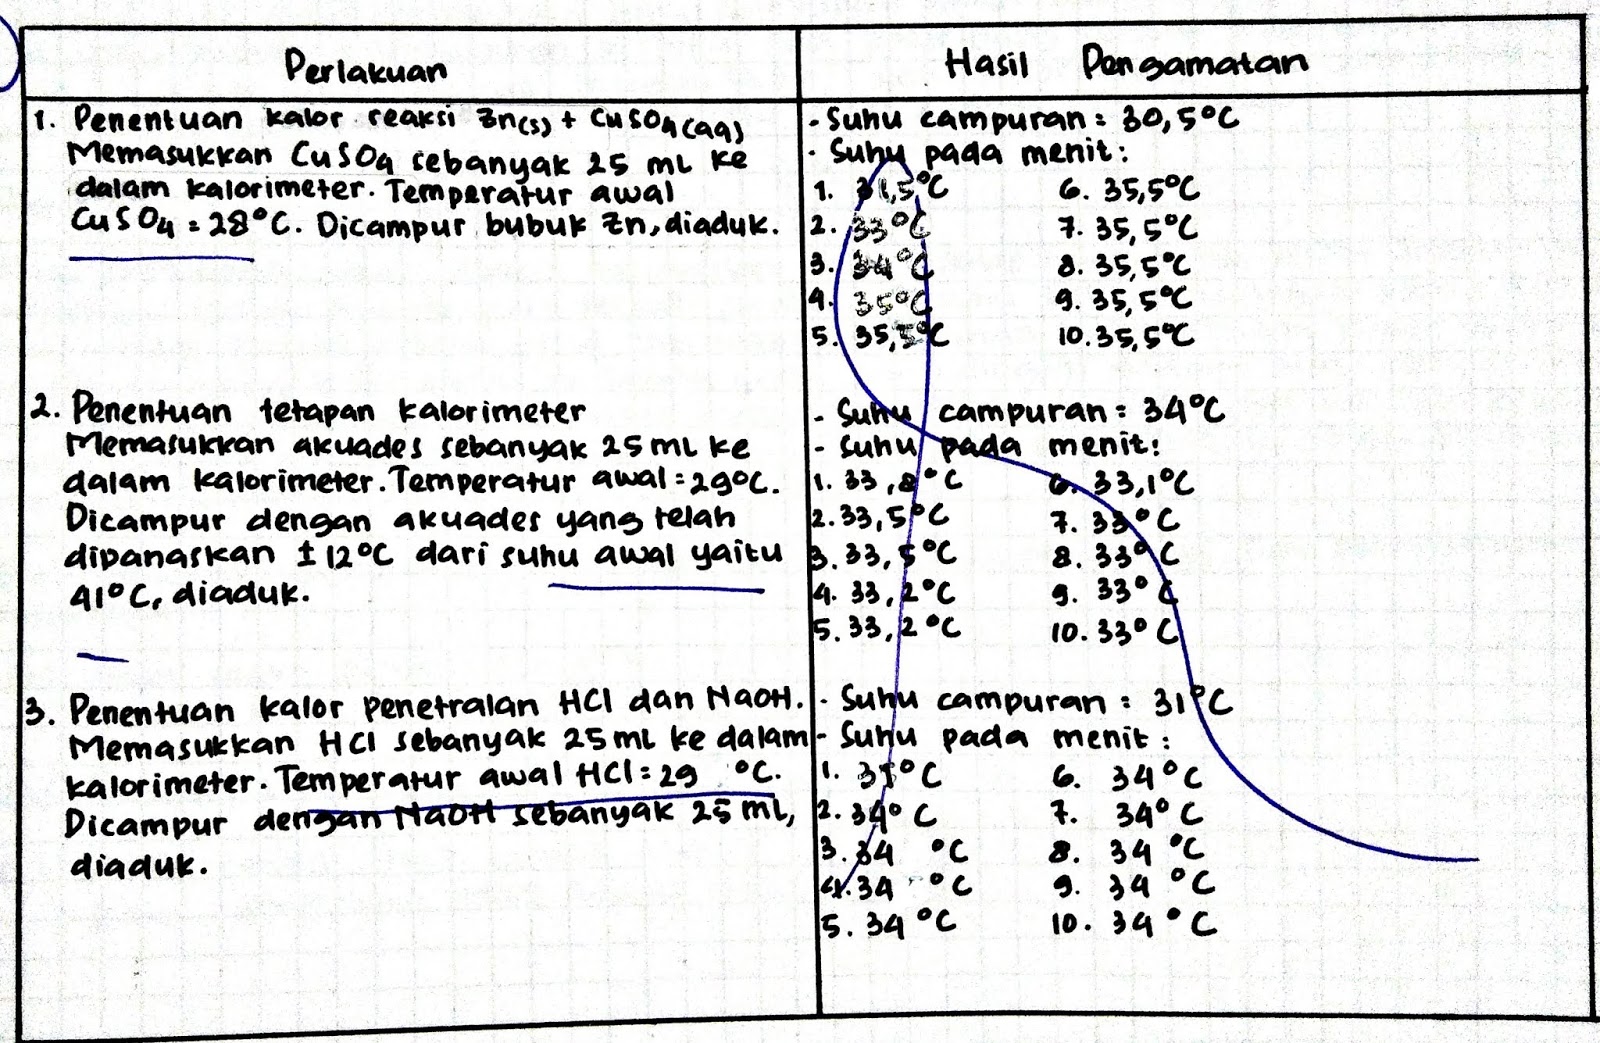 Perlakuan
Hasil Pengamatan
1. Penentuan kalor reaksi Zn(s) + CuSO4(aq)
Memasukkan CuSO4 sebanyak 25 mL ke
dalam kalorimeter. Temperatur awal
CuSO4 = 28°C. Dicampur bubuk Zn, diaduk.
- Suhu campuran = 30,5°C
- Suhu pada menit:
1. 31,5°C 6. 35,5°C
2. 33°C 7. 35,5°C
3. 34°C 8. 35,5°C
4. 35°C 9. 35,5°C
5. 35,5°C 10. 35,5°C
2. Penentuan tetapan kalorimeter
Memasukkan akuades sebanyak 25 mL ke
dalam kalorimeter. Temperatur awal = 29°C.
Dicampur dengan akuades yang telah
dipanaskan ± 12°C dari suhu awal yaitu
41°C, diaduk.
- Suhu campuran = 34°C
- Suhu pada menit:
1. 33,8°C 6. 33,1°C
2. 33,5°C 7. 33°C
3. 33,5°C 8. 33°C
4. 33,2°C 9. 33°C
5. 33,2°C 10. 33°C
3. Penentuan kalor penetralan HCl dan NaOH.
Memasukkan HCl sebanyak 25 mL ke dalam
kalorimeter. Temperatur awal HCl = 29 °C.
Dicampur dengan NaOH sebanyak 25 mL,
diaduk.
- Suhu campuran = 31°C
- Suhu pada menit :
1. °C 6. 34°C
2. 34°C 7. 34°C
3. 34 °C 8. 34 °C
4. 34 °C 9. 34 °C
5. 34 °C 10. 34 °C